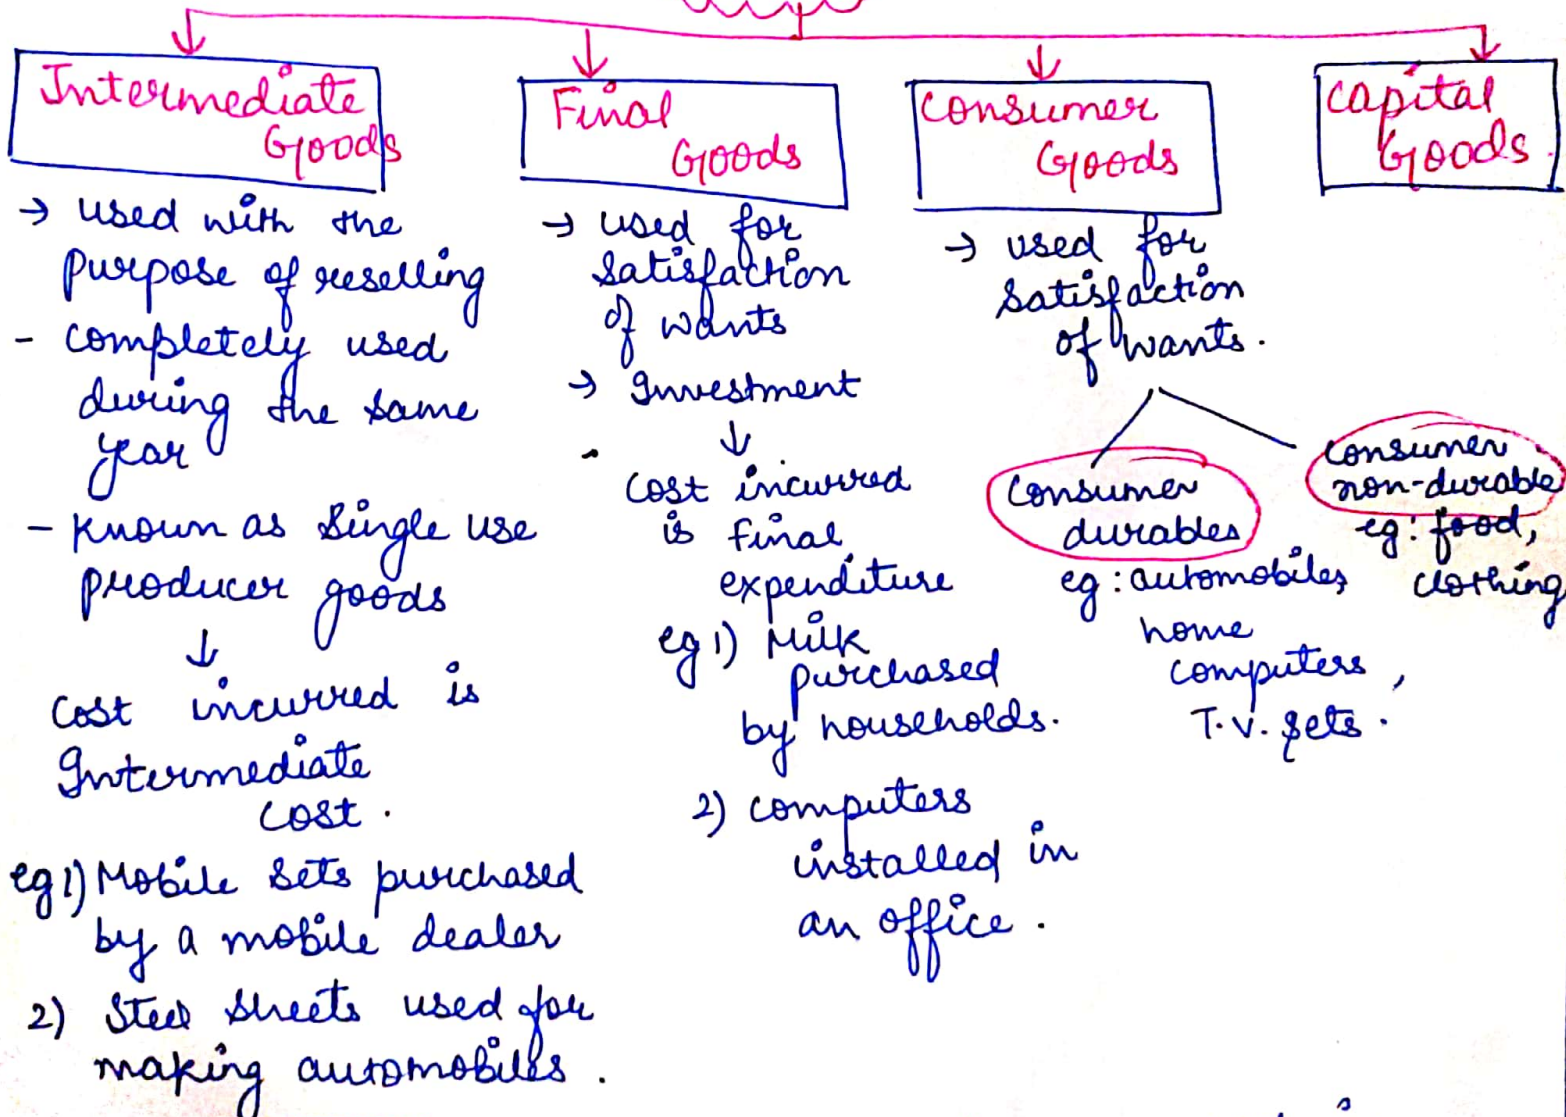 Intermediate
Goods
→ used with the
purpose of reselling
- completely used
during the same
year
- known as single use
producer goods
↓
cost incurred is
Intermediate
cost.
eg 1) Mobile sets purchased
by a mobile dealer
2) Steel sheets used for
making automobiles.
Final
Goods
→ used for
satisfaction
of wants
→ Investment
↓
cost incurred
is final
expenditure
eg 1) Milk
purchased
by households.
2) computers
installed in
an office.
consumer
Goods
→ used for
satisfaction
of wants.
consumer
durables
eg: automobiles,
home
computers,
T.V. sets.
consumer
non-durable
eg: food,
clothing
capital
Goods.